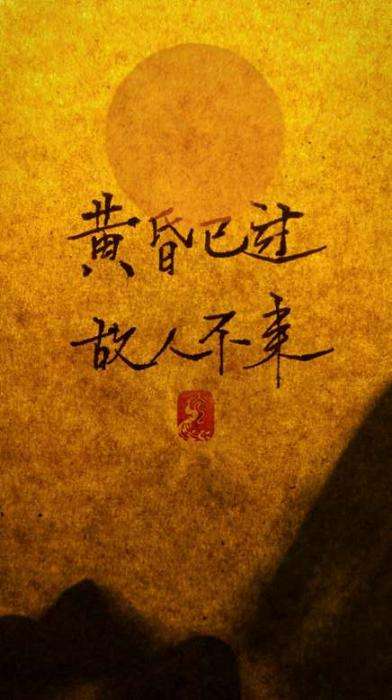 黄昏已过
故人不来